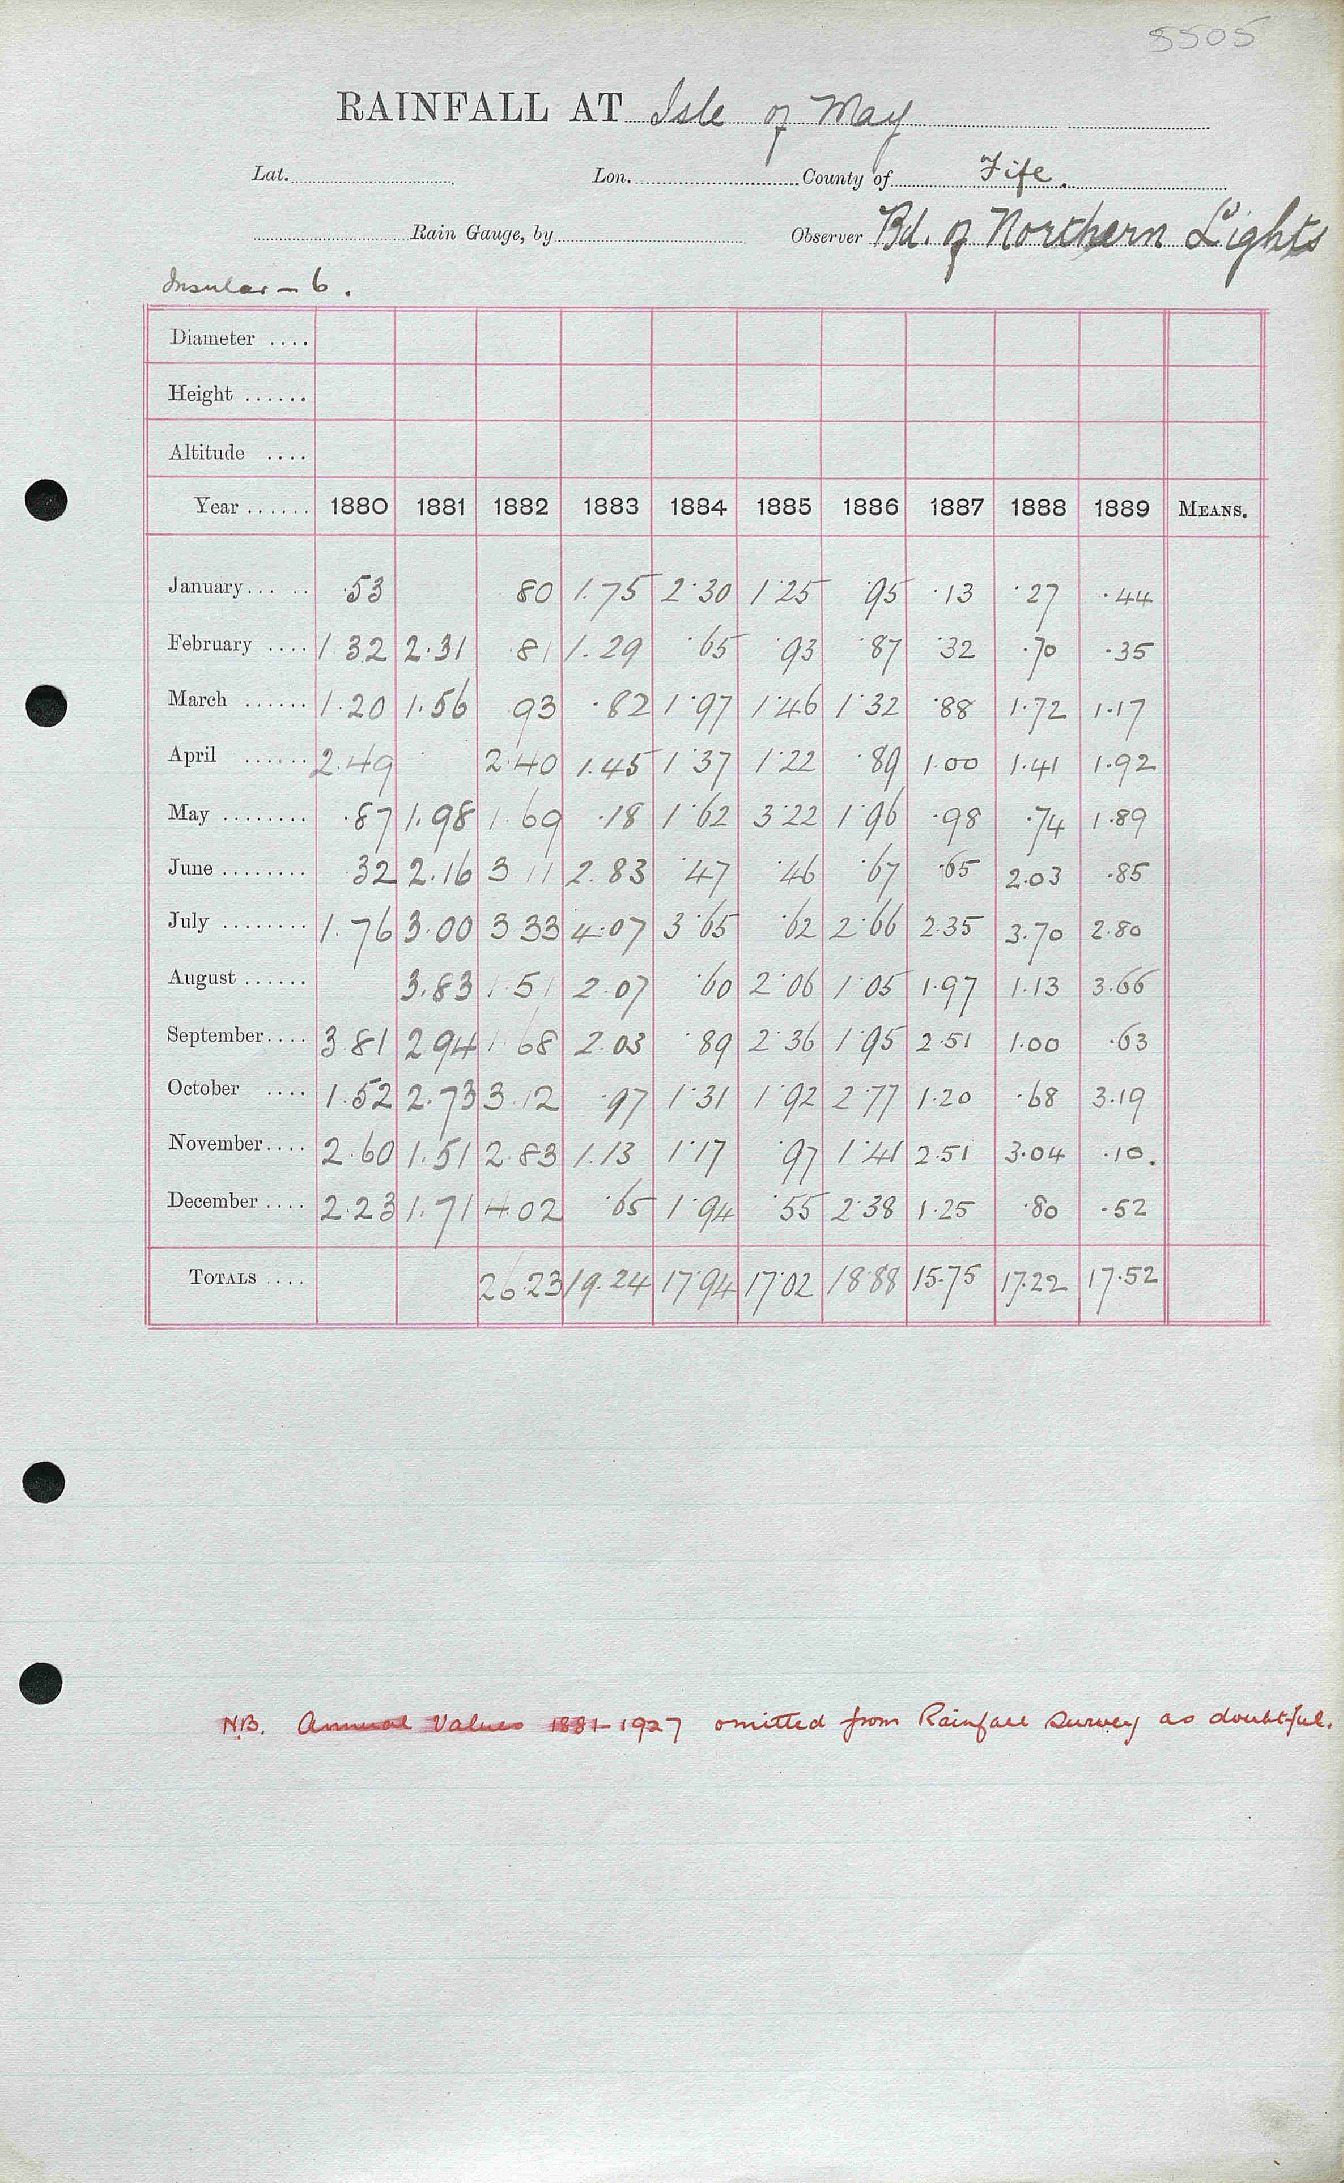 5505
RAINFALL AT Isle of May
Lat. Lon. County of Fife.
Rain Gauge, by Observer Bd. of Northern Lights
Insular – 6.
Diameter ....
Height ......
Altitude ....
Year ...... 1880 1881 1882 1883 1884 1885 1886 1887 1888 1889 MEANS.
January ... .. .53 80 1.75 2.30 1.25 95 .13 .27 .44
February .... 1 32 2.31 .81 1.29 .65 .93 .87 .32 .70 .35
March ...... 1.20 1.56 93 .82 1.97 1.46 1.32 .88 1.72 1.17
April ...... 2.49 2.40 1.45 1.37 1.22 .89 1.00 1.41 1.92
May ........ .87 1.98 1.69 .18 1.62 3.22 1.96 .98 .74 1.89
June ........ 32 2.16 3 11 2.83 .47 .46 .67 .65 2.03 .85
July ........ 1.76 3.00 3 33 4.07 3.65 .62 2.66 2.35 3.70 2.80
August ...... 3.83 1.51 2.07 .60 2.06 1.05 1.97 1.13 3.66
September .... 3 81 2 94 1 68 2.03 .89 2.36 1.95 2.51 1.00 .63
October .... 1.52 2.73 3.12 .97 1.31 1.92 2.77 1.20 .68 3.19
November .... 2.60 1.51 2.83 1.13 1.17 .97 1.41 2.51 3.04 .10.
December .... 2.23 1.71 4.02 .65 1.94 .55 2.38 1.25 .80 .52
TOTALS .... 26 23 19.24 17.94 17.02 18.88 15.75 17.22 17.52
NB. Annual Values 1881–1927 omitted from Rainfall Survey as doubtful.